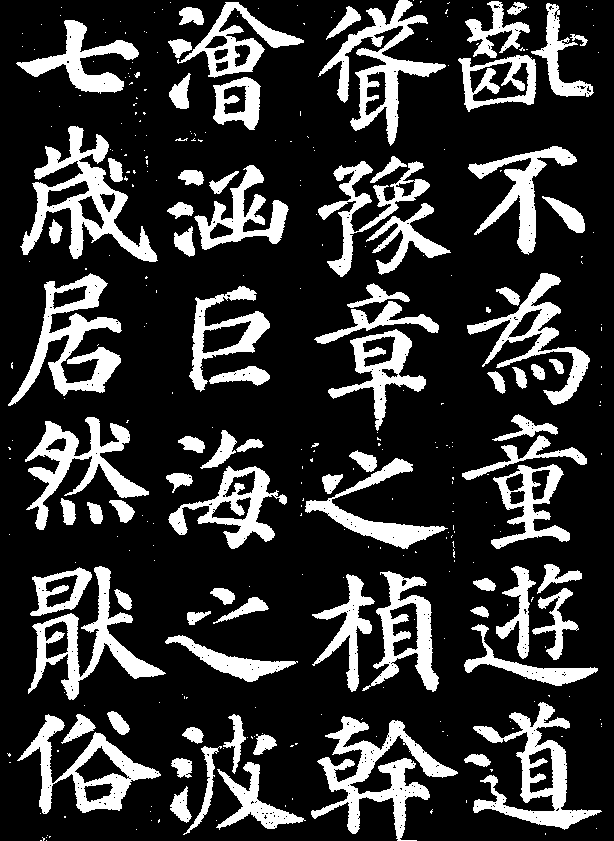 齔不為童遊道
聳豫章之楨幹
澮涵巨海之波
七歲居然猒俗